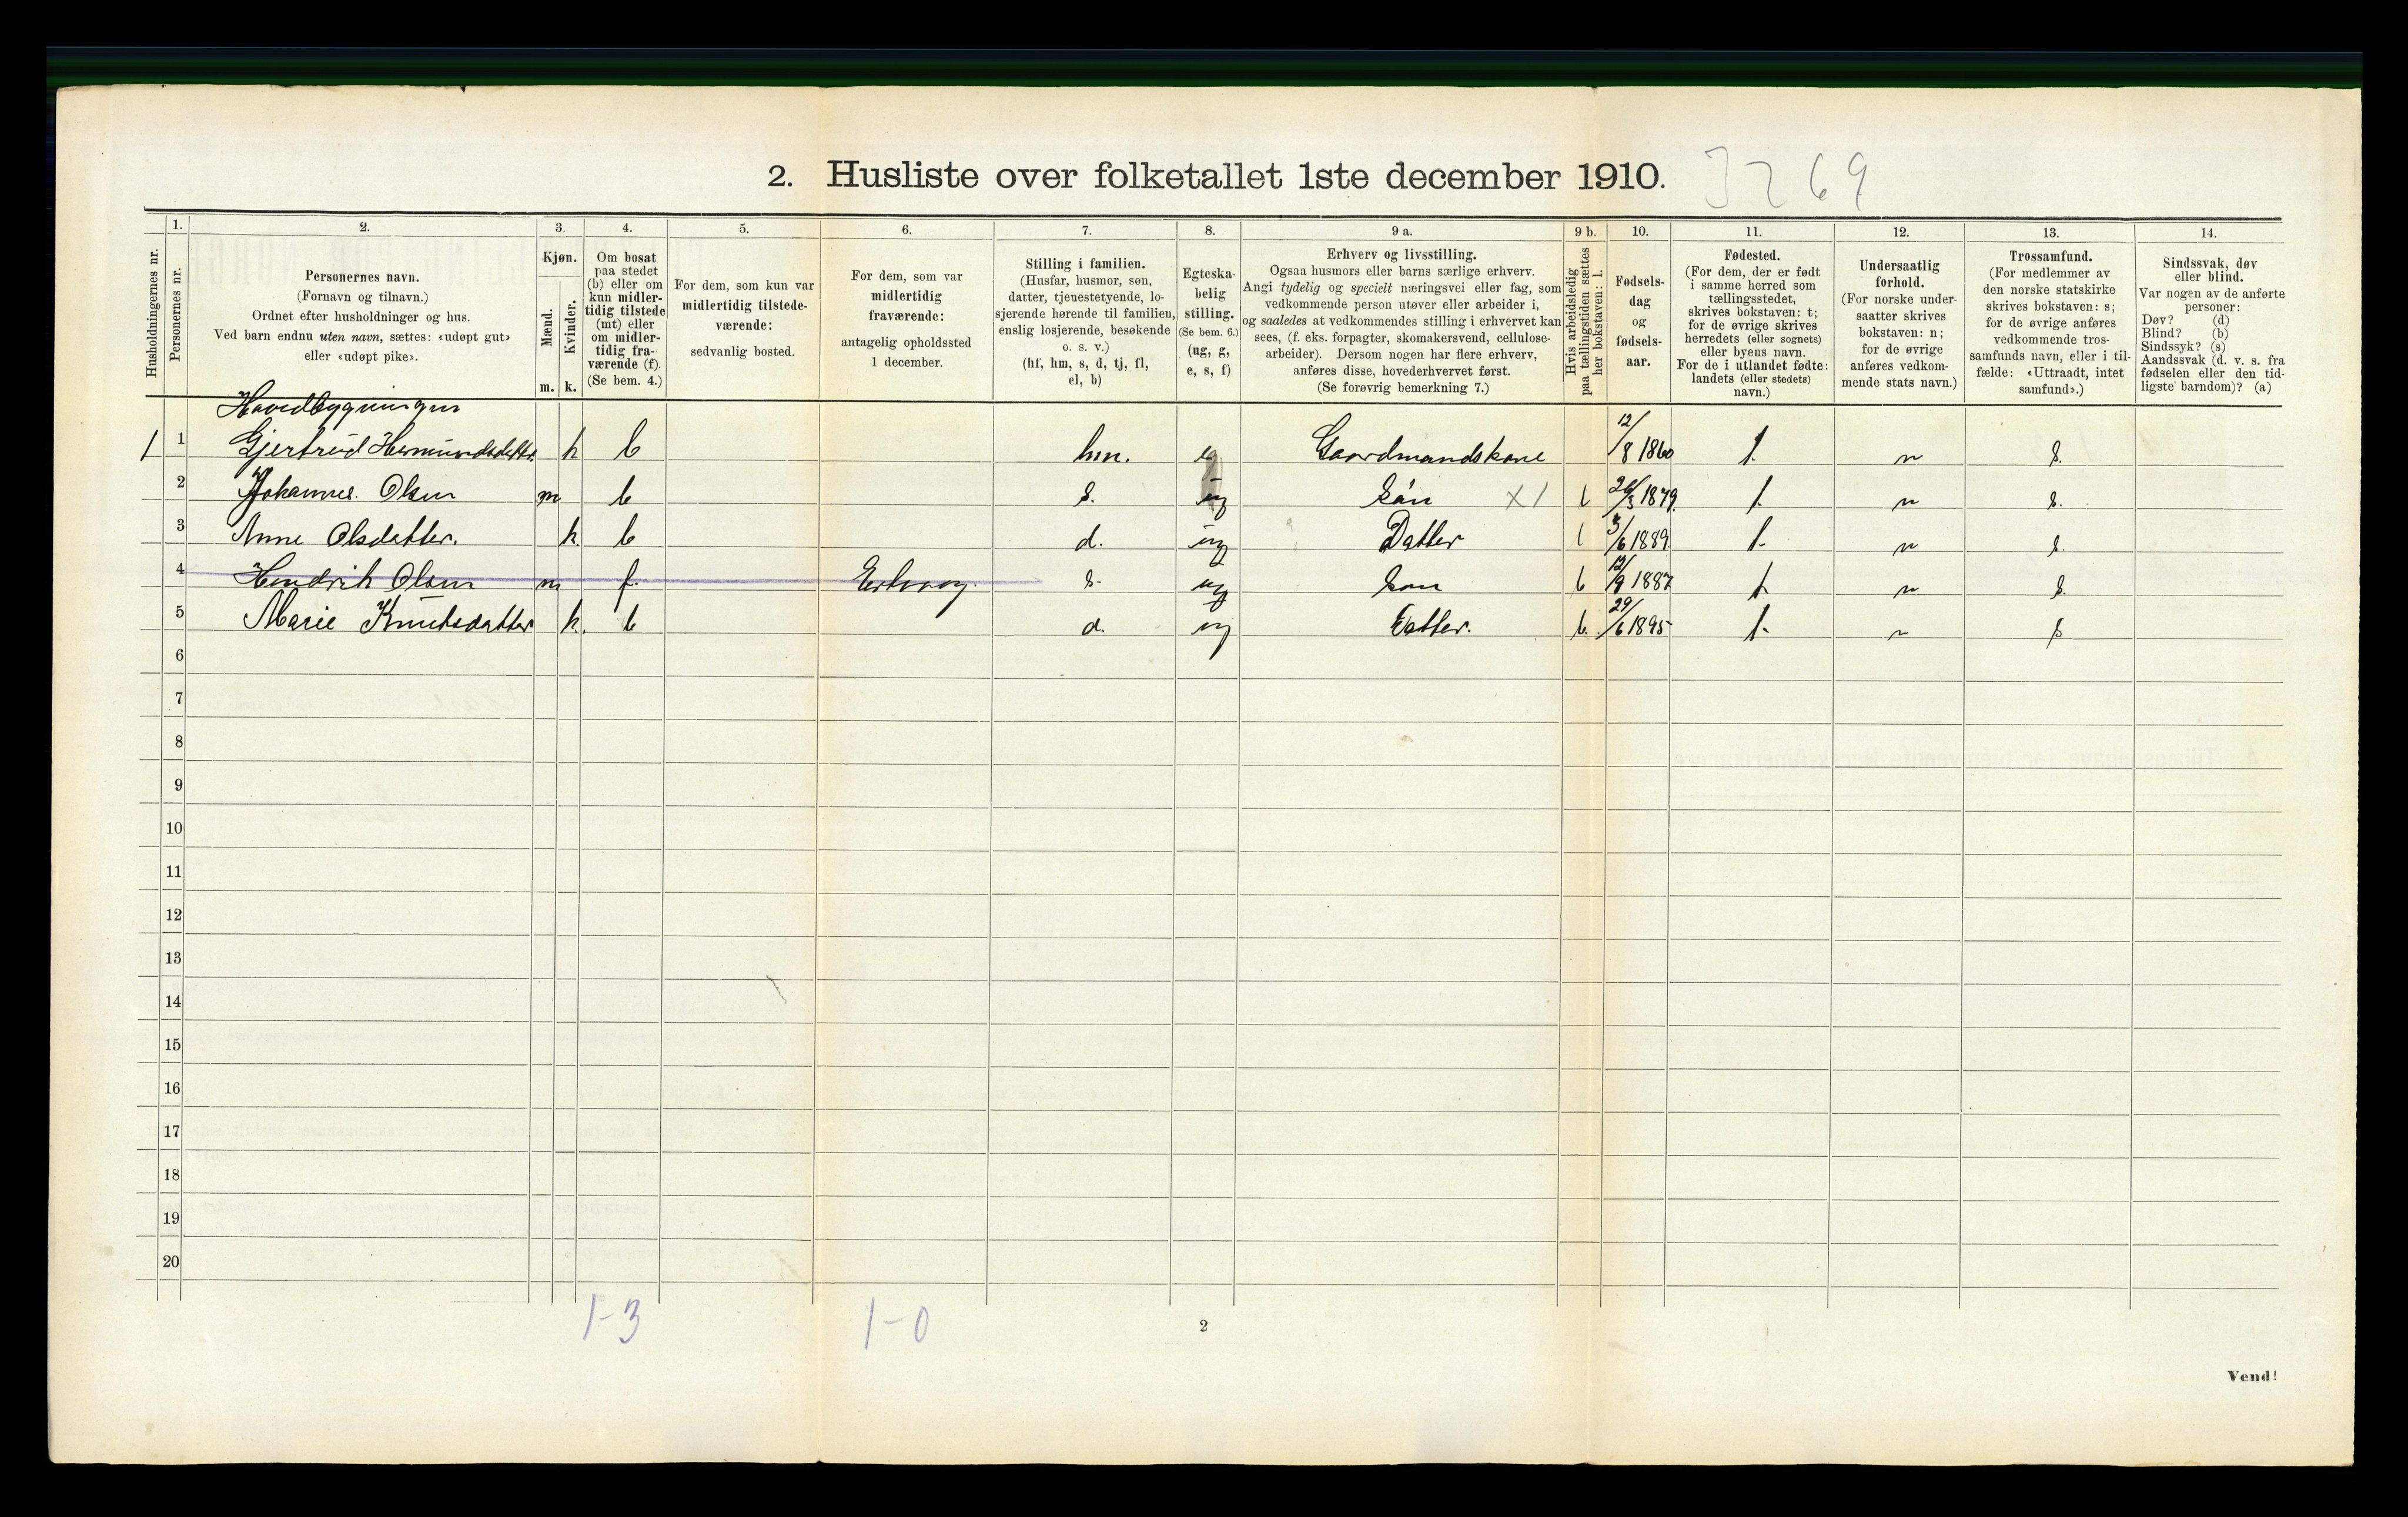 2. Husliste over folketallet 1ste december 1910. 3269
Husholdningernes nr.
1. Personernes nr.
2. Personernes navn.
(Fornavn og tilnavn.)
Ordnet efter husholdninger og hus.
Ved barn endnu uten navn, sættes: «udøpt gut»
eller «udøpt pike».
3. Kjøn.
Mænd. m.
Kvinder. k.
4. Om bosat
paa stedet
(b) eller om
kun midler-
tidig tilstede
(mt) eller
om midler-
tidig fra-
værende (f).
(Se bem. 4.)
5. For dem, som kun var
midlertidig tilstede-
værende:
sedvanlig bosted.
6. For dem, som var
midlertidig
fraværende:
antagelig opholdssted
1 december.
7. Stilling i familien.
(Husfar, husmor, søn,
datter, tjenestetyende, lo-
sjerende hørende til familien,
enslig losjerende, besøkende
o. s. v.)
(hf, hm, s, d, tj, fl,
el, b)
8. Egteska-
belig
stilling.
(Se bem. 6.)
(ug, g,
e, s, f)
9 a. Erhverv og livsstilling.
Ogsaa husmors eller barns særlige erhverv.
Angi tydelig og specielt næringsvei eller fag, som
vedkommende person utøver eller arbeider i,
og saaledes at vedkommendes stilling i erhvervet kan
sees, (f. eks. forpagter, skomakersvend, cellulose-
arbeider). Dersom nogen har flere erhverv,
anføres disse, hovederhvervet først.
(Se forøvrig bemerkning 7.)
9 b. Hvis arbeidsledig
paa tællingstiden sættes
her bokstaven: l.
10. Fødsels-
dag
og
fødsels-
aar.
11. Fødested.
(For dem, der er født
i samme herred som
tællingsstedet,
skrives bokstaven: t;
for de øvrige skrives
herredets (eller sognets)
eller byens navn.
For de i utlandet fødte:
landets (eller stedets)
navn.)
12. Undersaatlig
forhold.
(For norske under-
saatter skrives
bokstaven: n;
for de øvrige
anføres vedkom-
mende stats navn.)
13. Trossamfund.
(For medlemmer av
den norske statskirke
skrives bokstaven: s;
for de øvrige anføres
vedkommende tros-
samfunds navn, eller i til-
fælde: «Uttraadt, intet
samfund».)
14. Sindssvak, døv
eller blind.
Var nogen av de anførte
personer:
Døv? (d)
Blind? (b)
Sindssyk? (s)
Aandssvak (d. v. s. fra
fødselen eller den tid-
ligste barndom)? (a)
Hovedbygningen
1 1 Gjertrud Hermundsdatter k b hm. Gaardmandskone 12/8 1860 t. n s.
2 Johannes Olsen m b s. ug Søn X1 l 1879 t. n s.
3 Anne Olsdatter. k. b d. ug Datter l 3/6 1889 t. n s.
4 Hendrik Olsen m f. s. ug Søn l 12/9 1887 t. n s.
5 Marie Knutsdatter k. b d. ug Datter. l. 29/6 1895 t. n s
6
7
8
9
10
11
12
13
14
15
16
17
18
19
20
1-3 1-0
2
Vend!